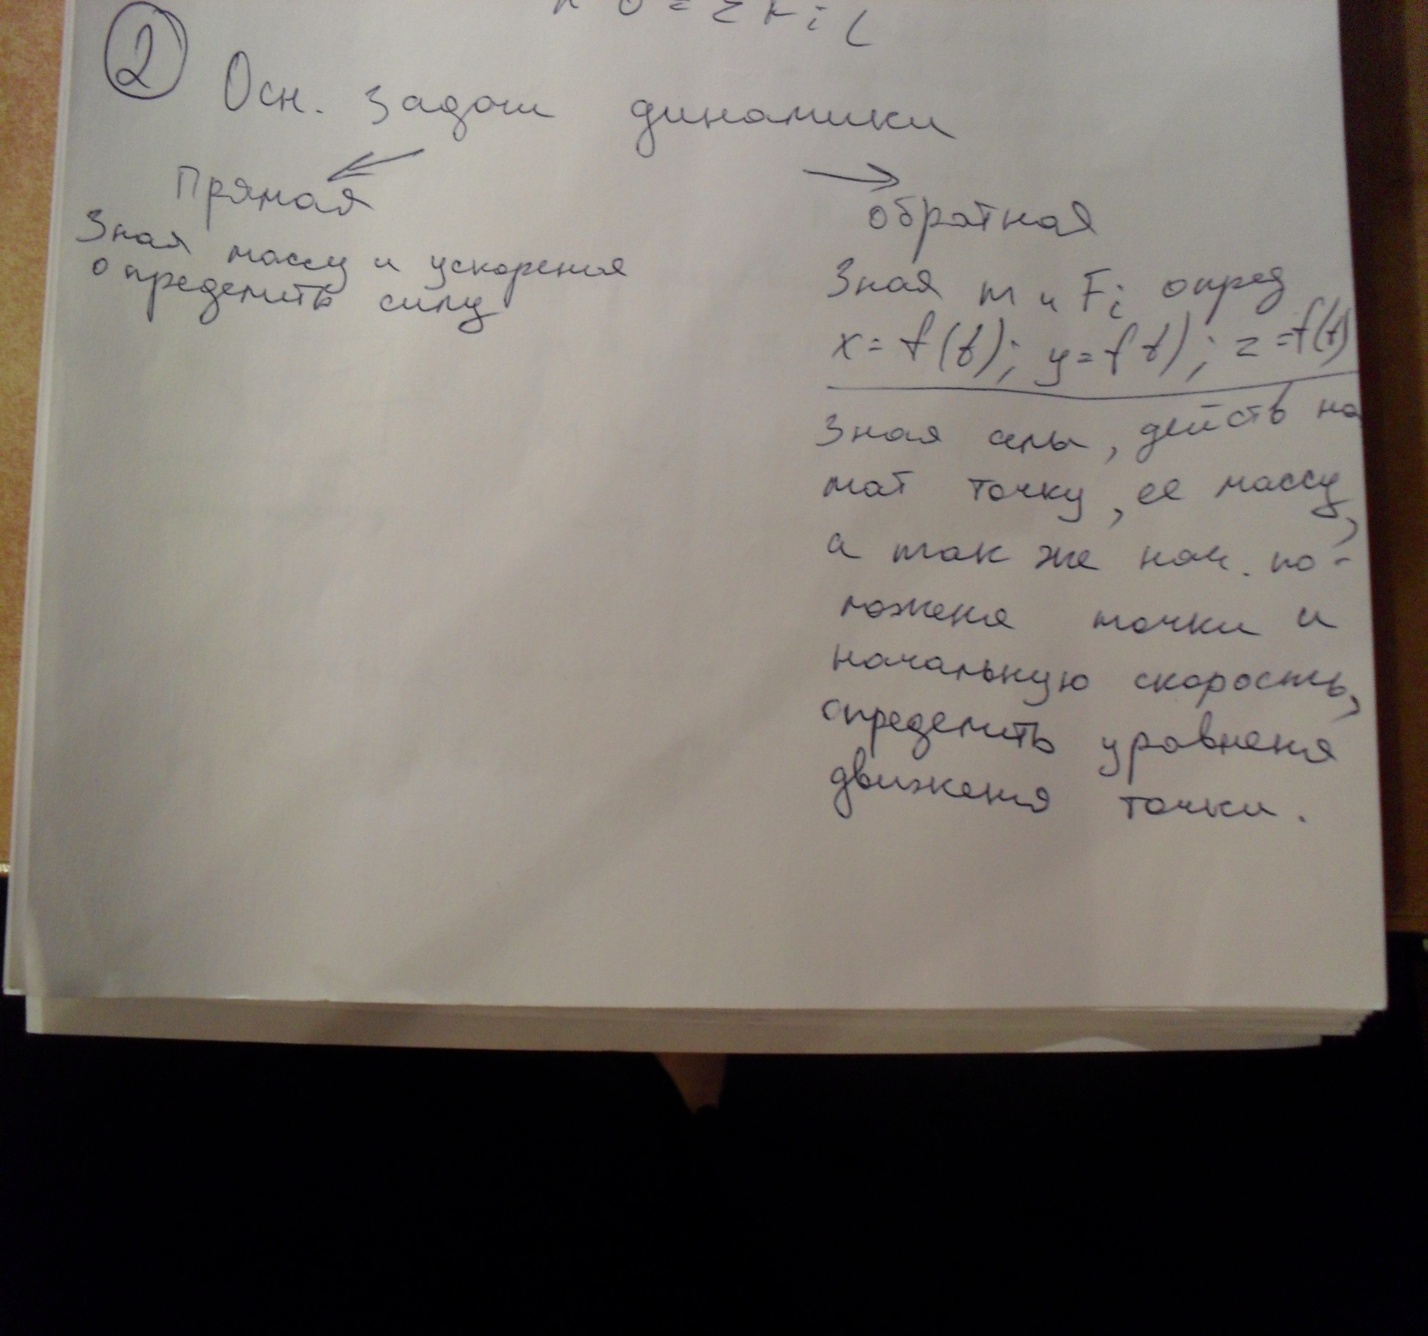 2
Осн. задачи динамики
Прямая
Зная массу и ускорения
определить силу
обратная
Зная m и Fi опред
x = f(t); y = f t); z = f(t)
Зная силы, действ на
мат точку, ее массу,
а так же нач. по-
ложеня точки и
начальную скорость,
определить уравненя
движеня точки.